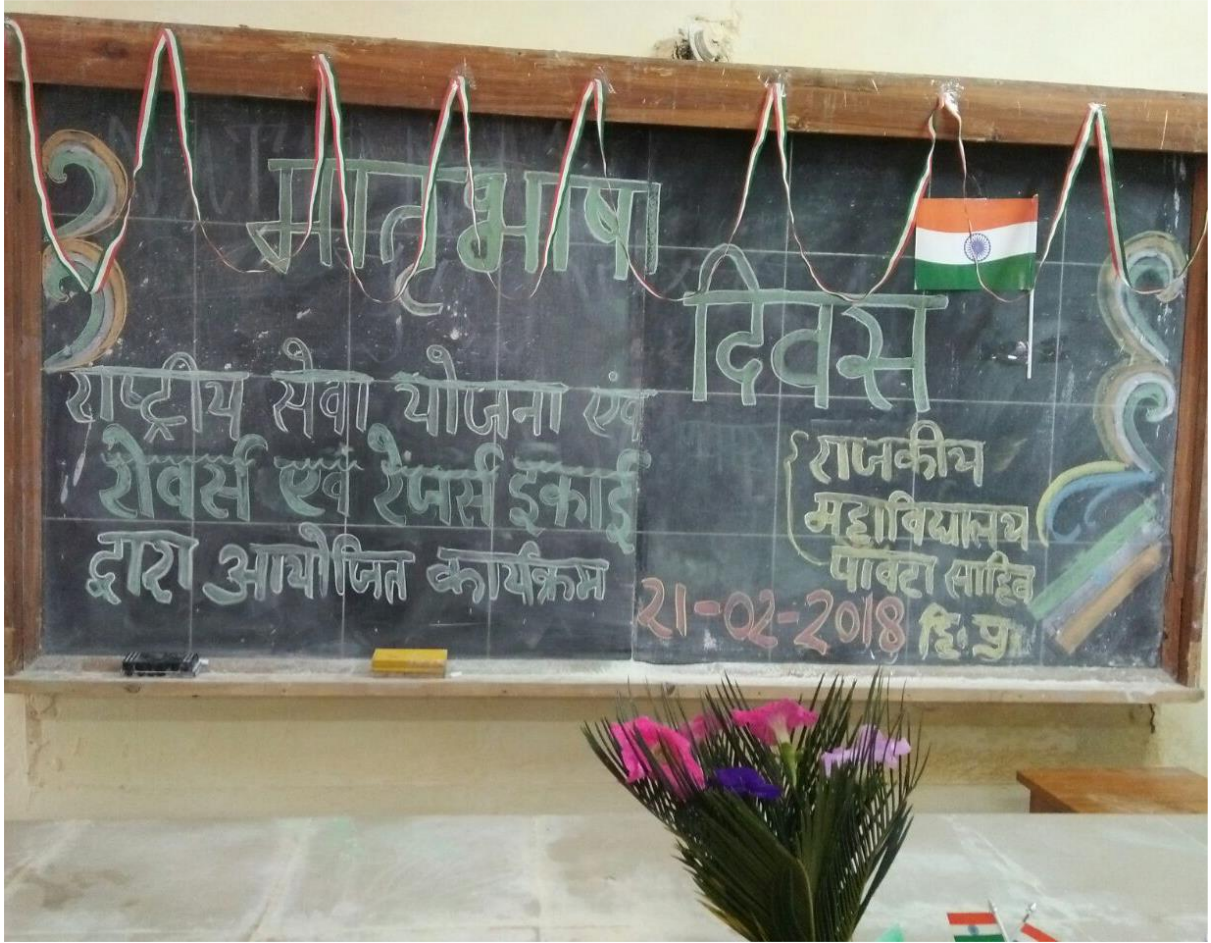 मातृभाषा
दिवस
राष्ट्रीय सेवा योजना एंव
रोवर्स एवं रेंजर्स इकाई
द्वारा आयोजित कार्यक्रम
राजकीय
महाविद्यालय
पांवटा साहिब
21-02-2018 हि.प्र.